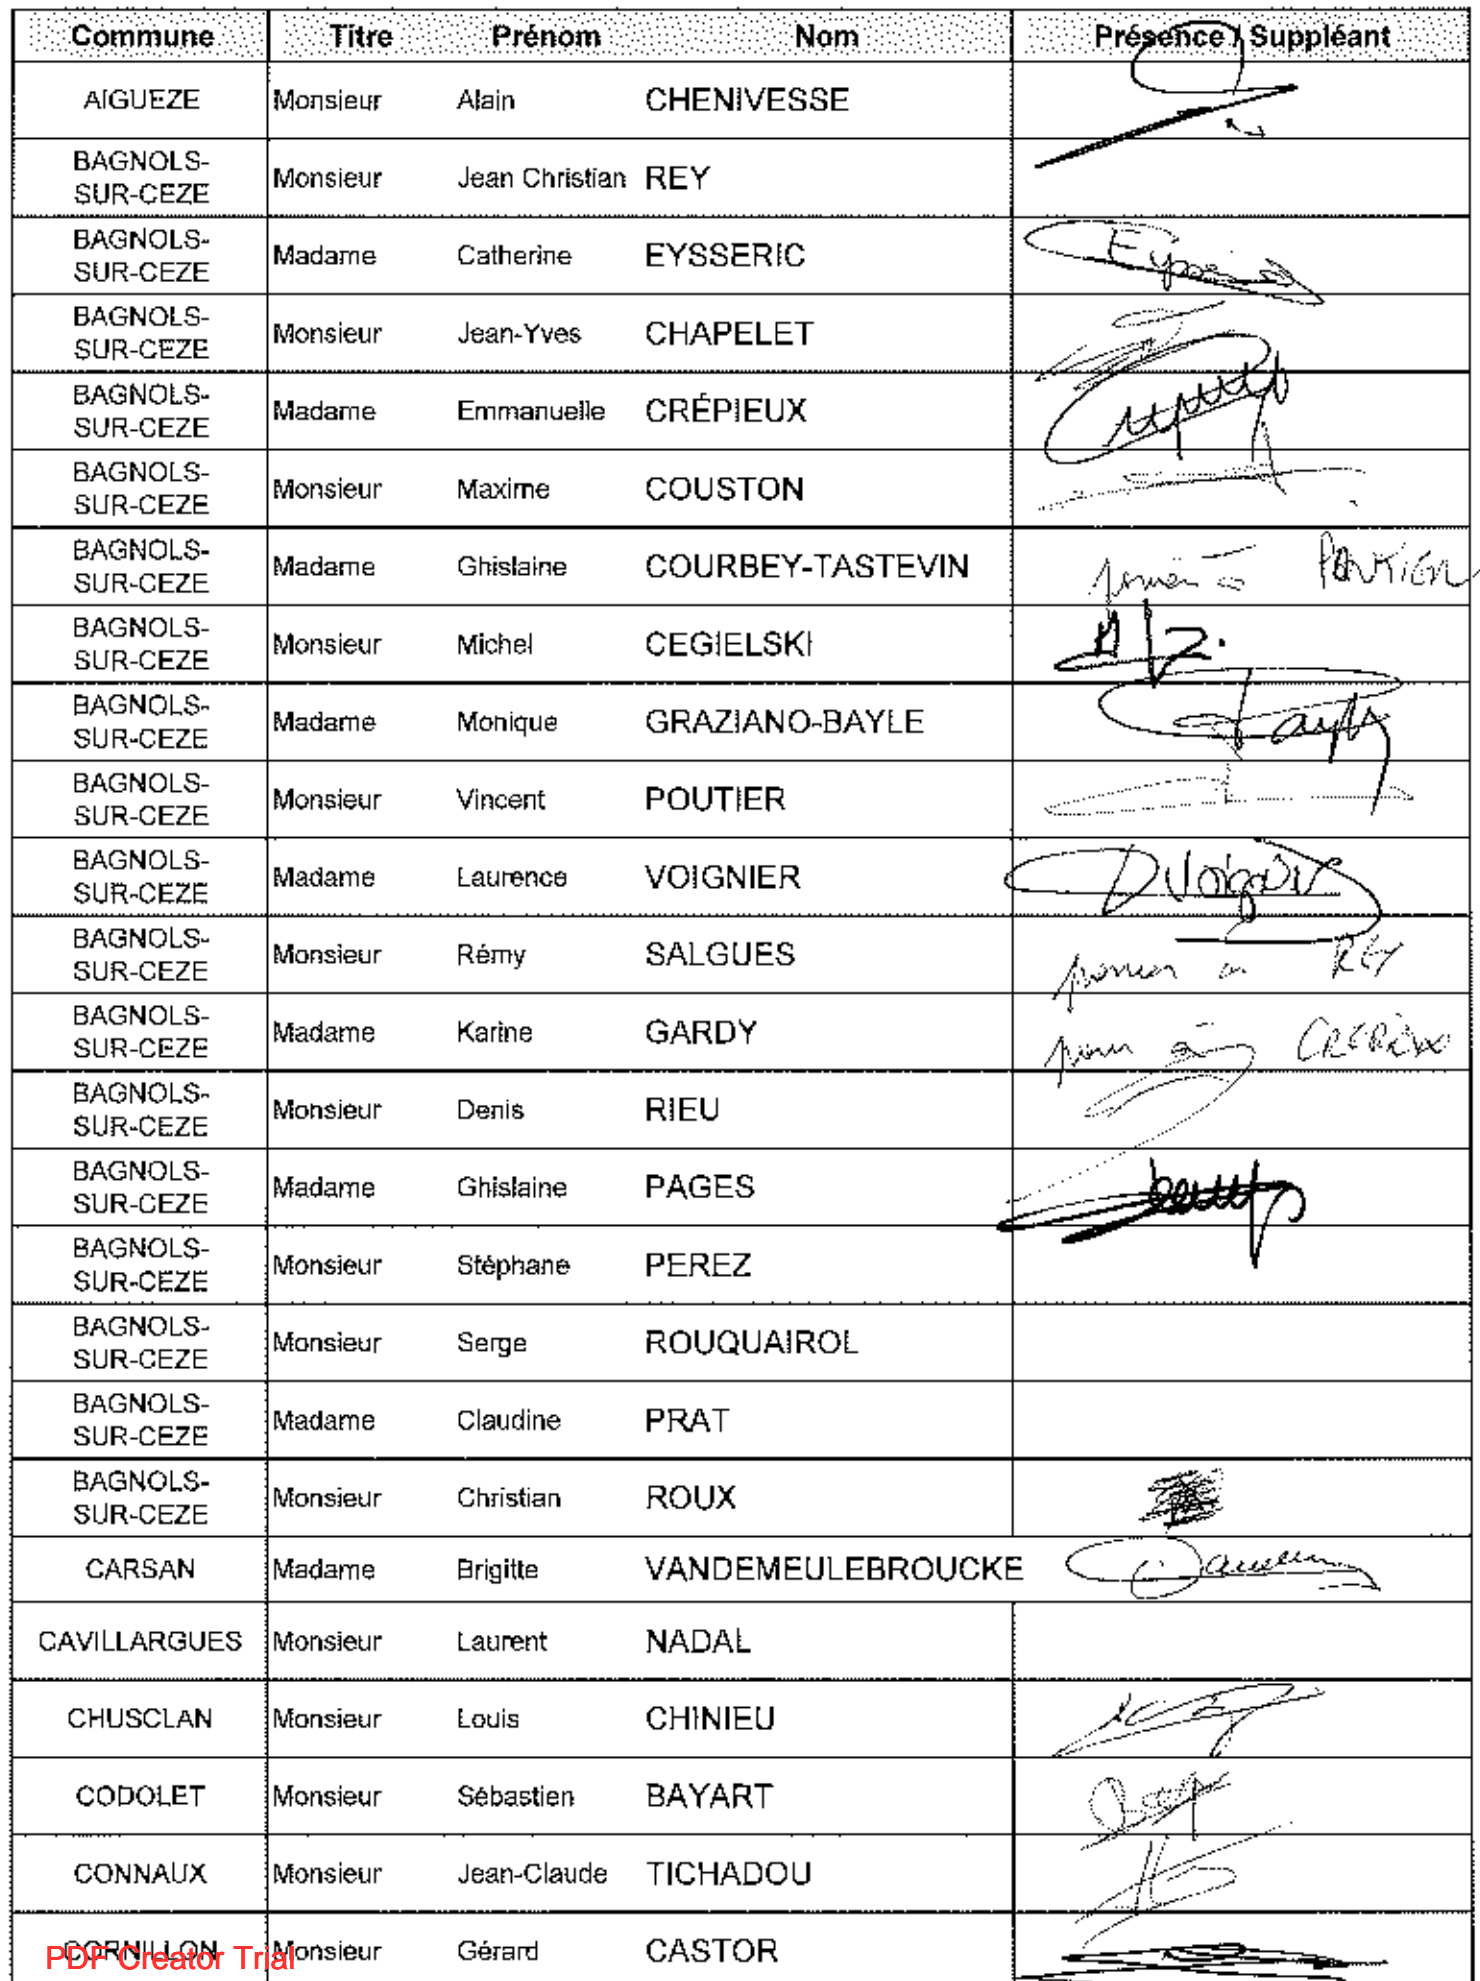 Commune Titre Prénom Nom Présence / Suppléant
AIGUEZE Monsieur Alain CHENIVESSE
BAGNOLS-
SUR-CEZE Monsieur Jean Christian REY
BAGNOLS-
SUR-CEZE Madame Catherine EYSSERIC
BAGNOLS-
SUR-CEZE Monsieur Jean-Yves CHAPELET
BAGNOLS-
SUR-CEZE Madame Emmanuelle CRÉPIEUX
BAGNOLS-
SUR-CEZE Monsieur Maxime COUSTON
BAGNOLS-
SUR-CEZE Madame Ghislaine COURBEY-TASTEVIN
BAGNOLS-
SUR-CEZE Monsieur Michel CEGIELSKI
BAGNOLS-
SUR-CEZE Madame Monique GRAZIANO-BAYLE
BAGNOLS-
SUR-CEZE Monsieur Vincent POUTIER
BAGNOLS-
SUR-CEZE Madame Laurence VOIGNIER
BAGNOLS-
SUR-CEZE Monsieur Rémy SALGUES REY
BAGNOLS-
SUR-CEZE Madame Karine GARDY
BAGNOLS-
SUR-CEZE Monsieur Denis RIEU
BAGNOLS-
SUR-CEZE Madame Ghislaine PAGES
BAGNOLS-
SUR-CEZE Monsieur Stéphane PEREZ
BAGNOLS-
SUR-CEZE Monsieur Serge ROUQUAIROL
BAGNOLS-
SUR-CEZE Madame Claudine PRAT
BAGNOLS-
SUR-CEZE Monsieur Christian ROUX
CARSAN Madame Brigitte VANDEMEULEBROUCKE
CAVILLARGUES Monsieur Laurent NADAL
CHUSCLAN Monsieur Louis CHINIEU
CODOLET Monsieur Sébastien BAYART
CONNAUX Monsieur Jean-Claude TICHADOU
CORNILLON Monsieur Gérard CASTOR
PDF Creator Trial